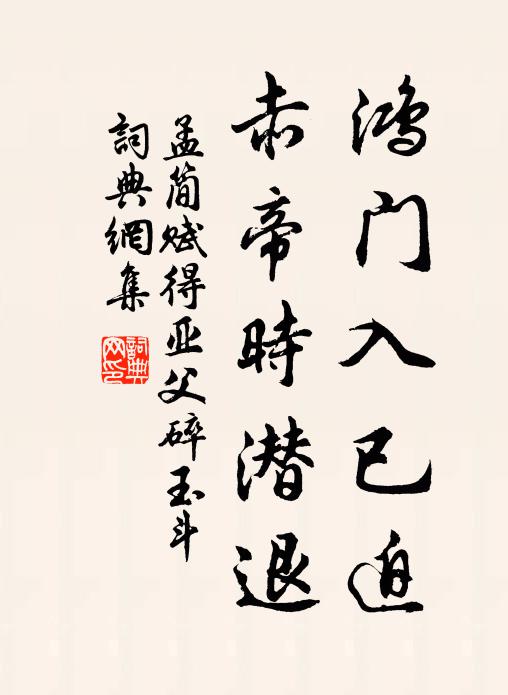 鸿门入已迫
赤帝時潜退
孟简赋得亚父碎玉斗
詞典網集
詞典網印